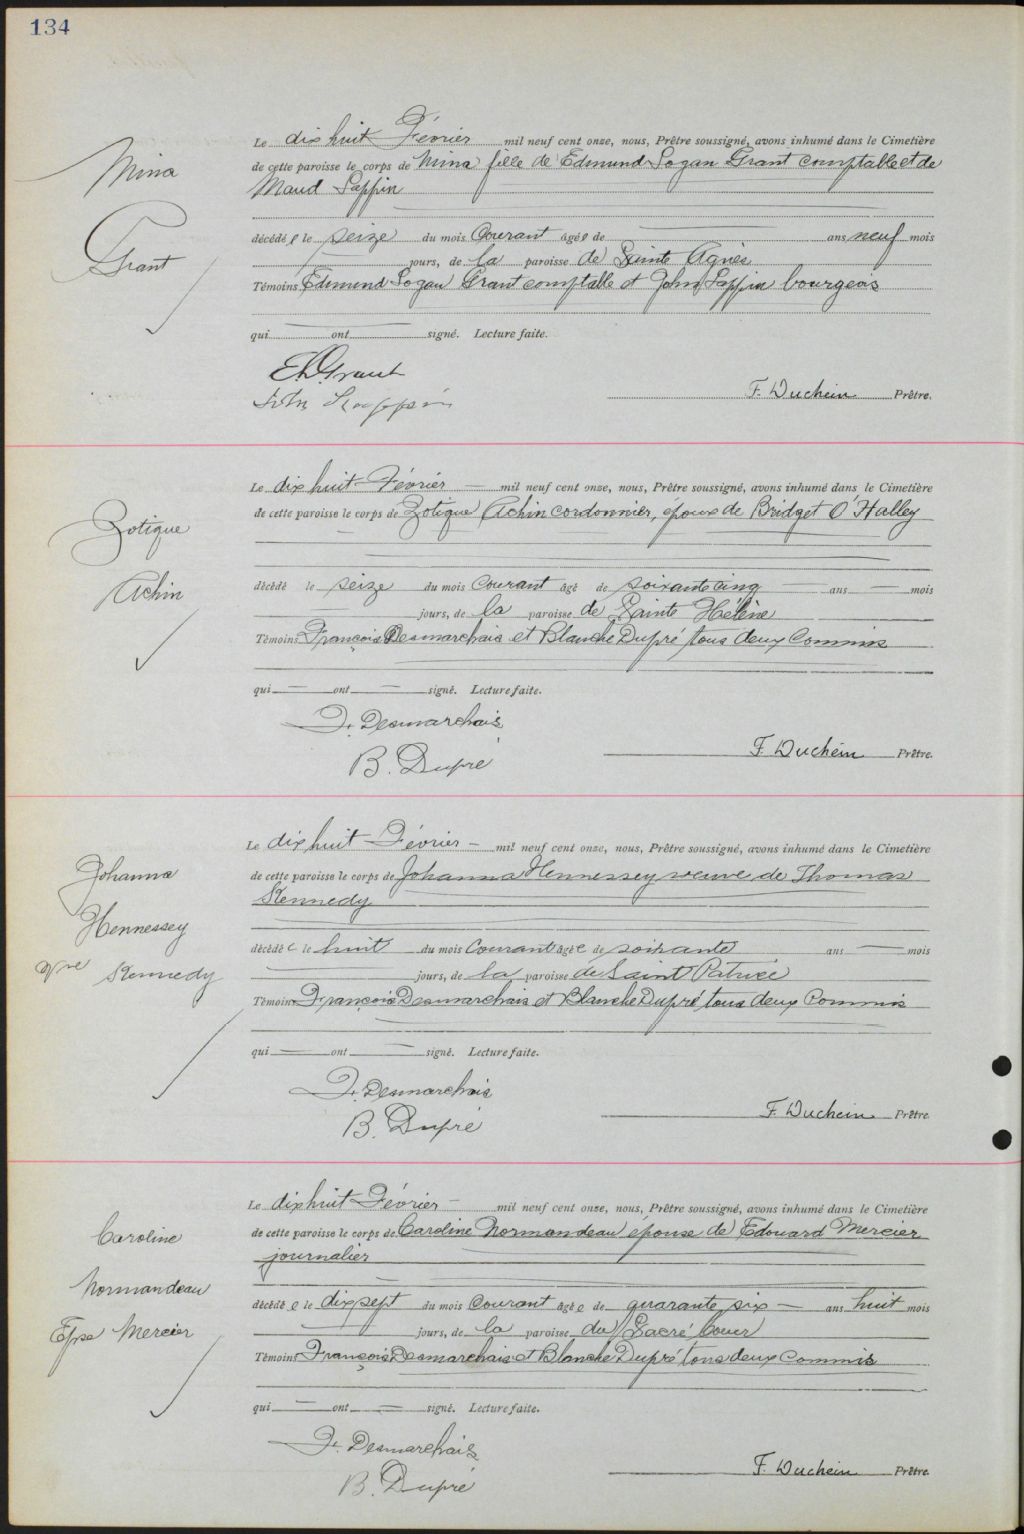 134
Mina
Grant
Le dix huit Février mil neuf cent onze, nous, Prêtre soussigné, avons inhumé dans le Cimetière
de cette paroisse le corps de Mina fille de Edmund Logan Grant comptable et de
Maud Lappin
décédé e le seize du mois Courant âgé e de ans neuf mois
jours, de la paroisse de Sainte Agnès
Témoins Edmund Logan Grant comptable et John Lappin bourgeois
qui ont signé. Lecture faite.
E.L. Grant
John Lappin
F. Duchein Prêtre.
Zotique
Achin
Le dix huit Février mil neuf cent onze, nous, Prêtre soussigné, avons inhumé dans le Cimetière
de cette paroisse le corps de Zotique Achin cordonnier, époux de Bridget O'Halley
décédé le seize du mois Courant âgé de soixante cinq ans mois
jours, de la paroisse de Sainte Hélène
Témoins François Desmarchais et Blanche Dupré tous deux Commis
qui ont signé. Lecture faite.
F. Desmarchais
B. Dupré
F. Duchein Prêtre.
Johanna
Hennessey
Vve Kennedy
Le dix huit Février mil neuf cent onze, nous, Prêtre soussigné, avons inhumé dans le Cimetière
de cette paroisse le corps de Johanna Hennessey veuve de Thomas
Kennedy
décédé e le huit du mois Courant âgé e de soixante ans mois
jours, de la paroisse de Saint Patrice
Témoins François Desmarchais et Blanche Dupré tous deux Commis
qui ont signé. Lecture faite.
F. Desmarchais
B. Dupré
F. Duchein Prêtre
Caroline
Normandeau
Epse Mercier
Le dix huit Février mil neuf cent onze, nous, Prêtre soussigné, avons inhumé dans le Cimetière
de cette paroisse le corps de Caroline Normandeau épouse de Edouard Mercier
journalier
décédé e le dix sept du mois Courant âgé e de quarante six ans huit mois
jours, de la paroisse du Sacré Coeur
Témoins François Desmarchais et Blanche Dupré tous deux Commis
qui ont signé. Lecture faite.
F. Desmarchais
B. Dupré
F. Duchein Prêtre.